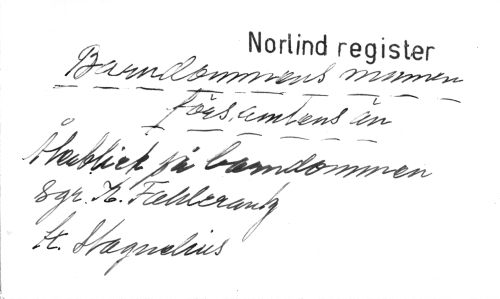 Norlind register
Barndommens minnen
förs, amtens än
Återblick på barndommen
Sgr. K. Fahlcrantz
St. Stagnelius